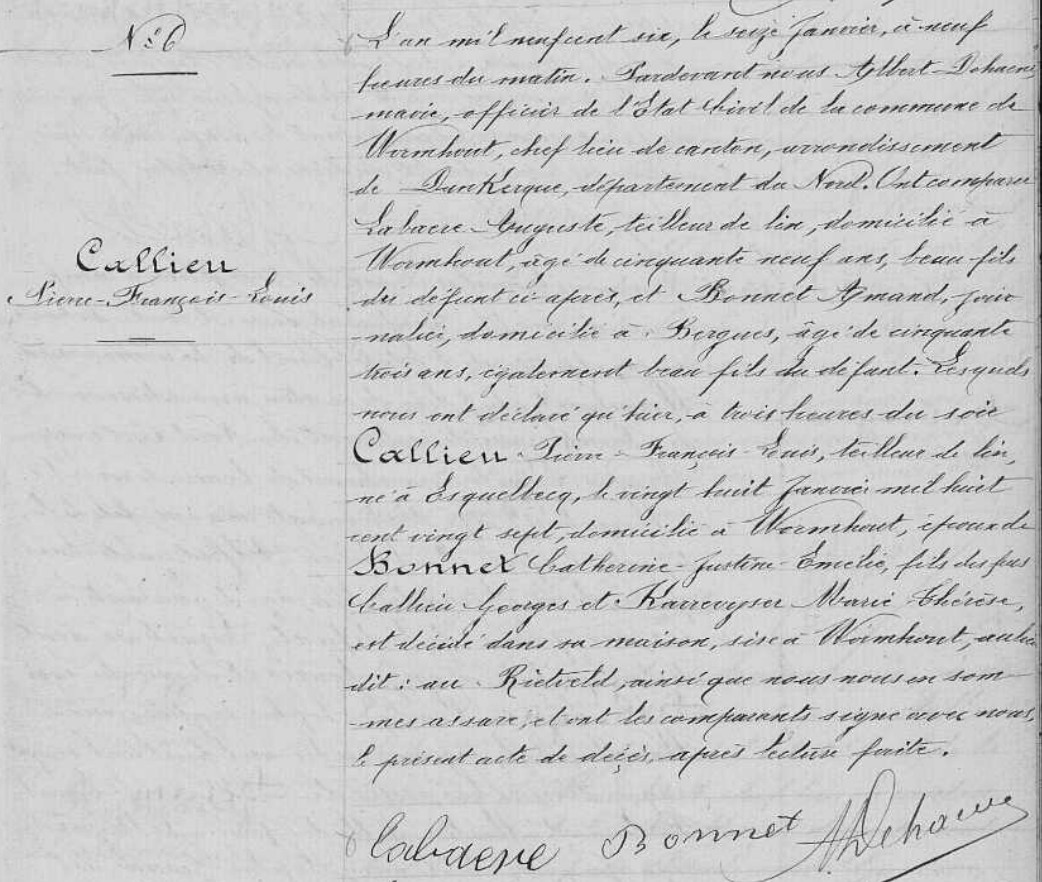 N° 6
Callieu
Pierre-François-Louis
L'an mil neuf cent six, le seize Janvier, à neuf
heures du matin. Pardevant nous Albert Dehaene
maire, officier de l'Etat Civil de la commune de
Wormhout, chef lieu de canton, arrondissement
de Dunkerque, département du Nord. Ont comparu
Labaere Auguste, teilleur de lin, domicilié à
Wormhout, âgé de cinquante neuf ans, beau fils
du défunt ci après, et Bonnet Amand, jour
-nalier, domicilié à Bergues, âgé de cinquante
trois ans, également beau fils du défunt. Lesquels
nous ont déclaré qu'hier, à trois heures du soir
Callieu Pierre-François-Louis, teilleur de lin,
né à Esquelbecq, le vingt huit Janvier mil huit
cent vingt sept, domicilié à Wormhout, époux de
Bonnet Catherine-Justine-Emélie, fils des feus
Callieu Georges et Karreveyser Marie Thérèse,
est décédé dans sa maison, sise à Wormhout, au lieu
dit : au Rietveld, ainsi que nous nous en som-
-mes assuré, et ont les comparants signé avec nous,
le présent acte de décès, après lecture faite.
Labaere Bonnet A. Dehaene